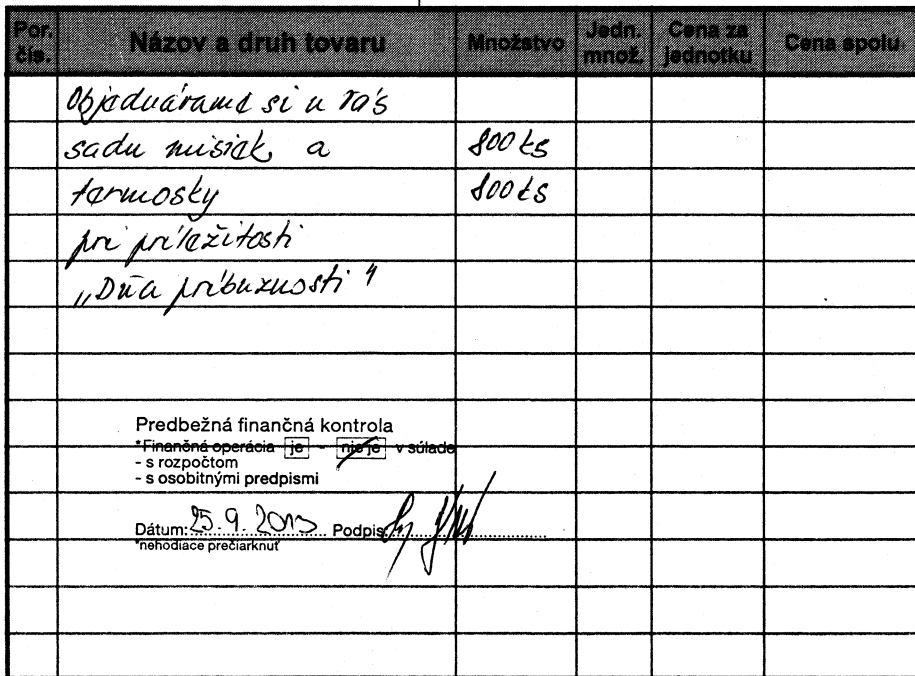 Por. čís. Názov a druh tovaru Množstvo Jedn. množ. Cena za jednotku Cena spolu
Objednávame si u Vás
sadu misiek a 800 ks
termosky 800 ks
pri príležitosti
„Dňa príbuznosti"
Predbežná finančná kontrola
*Finančná operácia je - nie je v súlade
- s rozpočtom
- s osobitnými predpismi
Dátum: 25.9.2013 Podpis
*nehodiace prečiarknuť